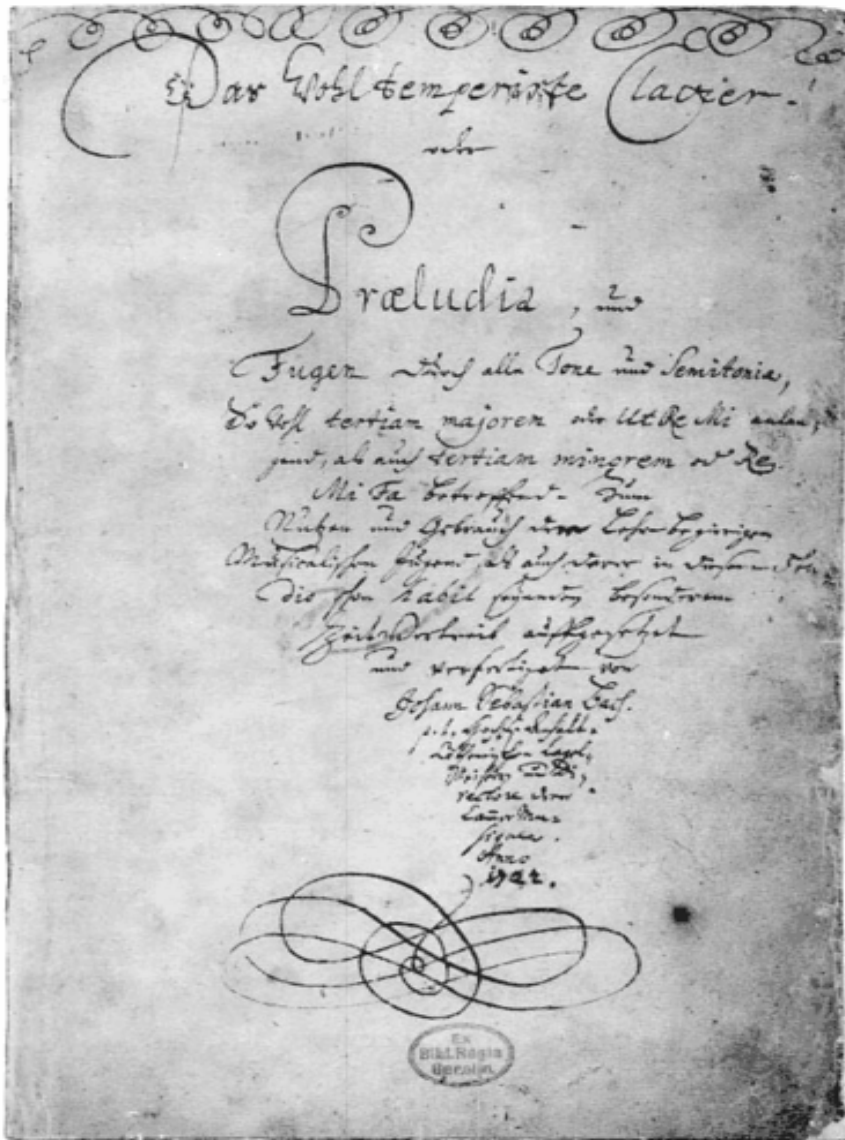 Das Wohltemperirte Clavier.
oder
Præludia, und
Fugen durch alle Tone und Semitonia,
So wohl tertiam majorem oder Ut Re Mi anlan,
gend, als auch tertiam minorem oder Re
Mi Fa betreffend. Zum
Nutzen und Gebrauch der Lehrbegierigen
Musicalischen Jugend, als auch derer in diesem stu,
dio schon habil seyenden besonderem
Zeitvertreib auffgesetzet
und verfertiget von
Johann Sebastian Bach.
p. t. Hochfürstlich Anhalt-
Cöthenischen Capel,
Meistern und Di,
rectore derer
Cammer Mu-
siquen.
Anno
1722.
Ex
Bibl. Regia
Berolin.